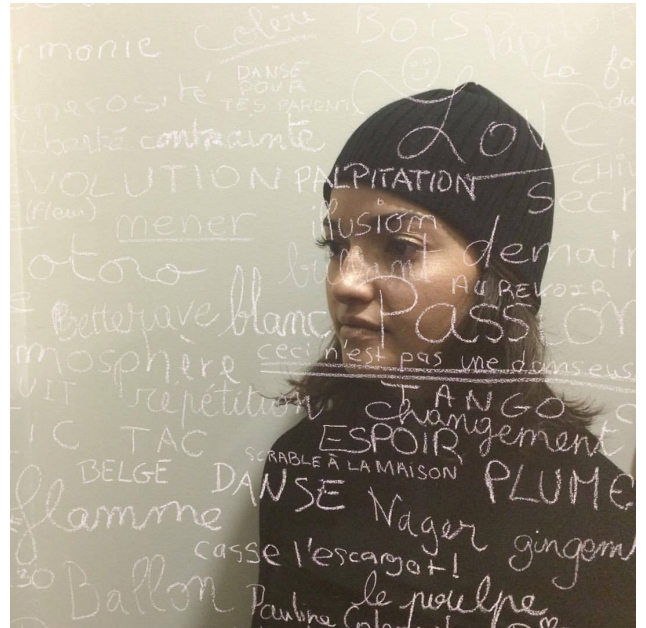 colère BOIS
rmonie
La
DANSE
POUR
TES PARENTS
enerosité
LOVE
liberté contrainte
VOLUTION PALPITATION
CHI
SECR
(fleur)
mener illusion
demain
totoro brillant
AU REVOIR
Betterave blanc Passion
mosphère ceci n'est pas une danseus
UIT répétition TANGO
changement
IC TAC ESPOIR
SCRABLE À LA MAISON
BELGE DANSE PLUME
flamme Nager gingem
casse l'escargot!
30 Ballon le poulpe
Pauline